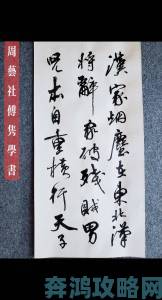 漢家烟塵在東北漢
將辭家破殘賊男
兒本自重橫行天子
周藝社傅隽學書
奔鸿攻略网